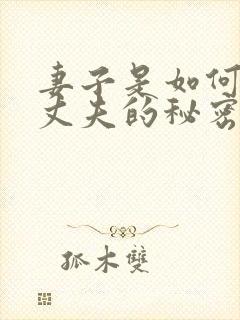 妻子是如何
丈夫的秘密
孤木雙